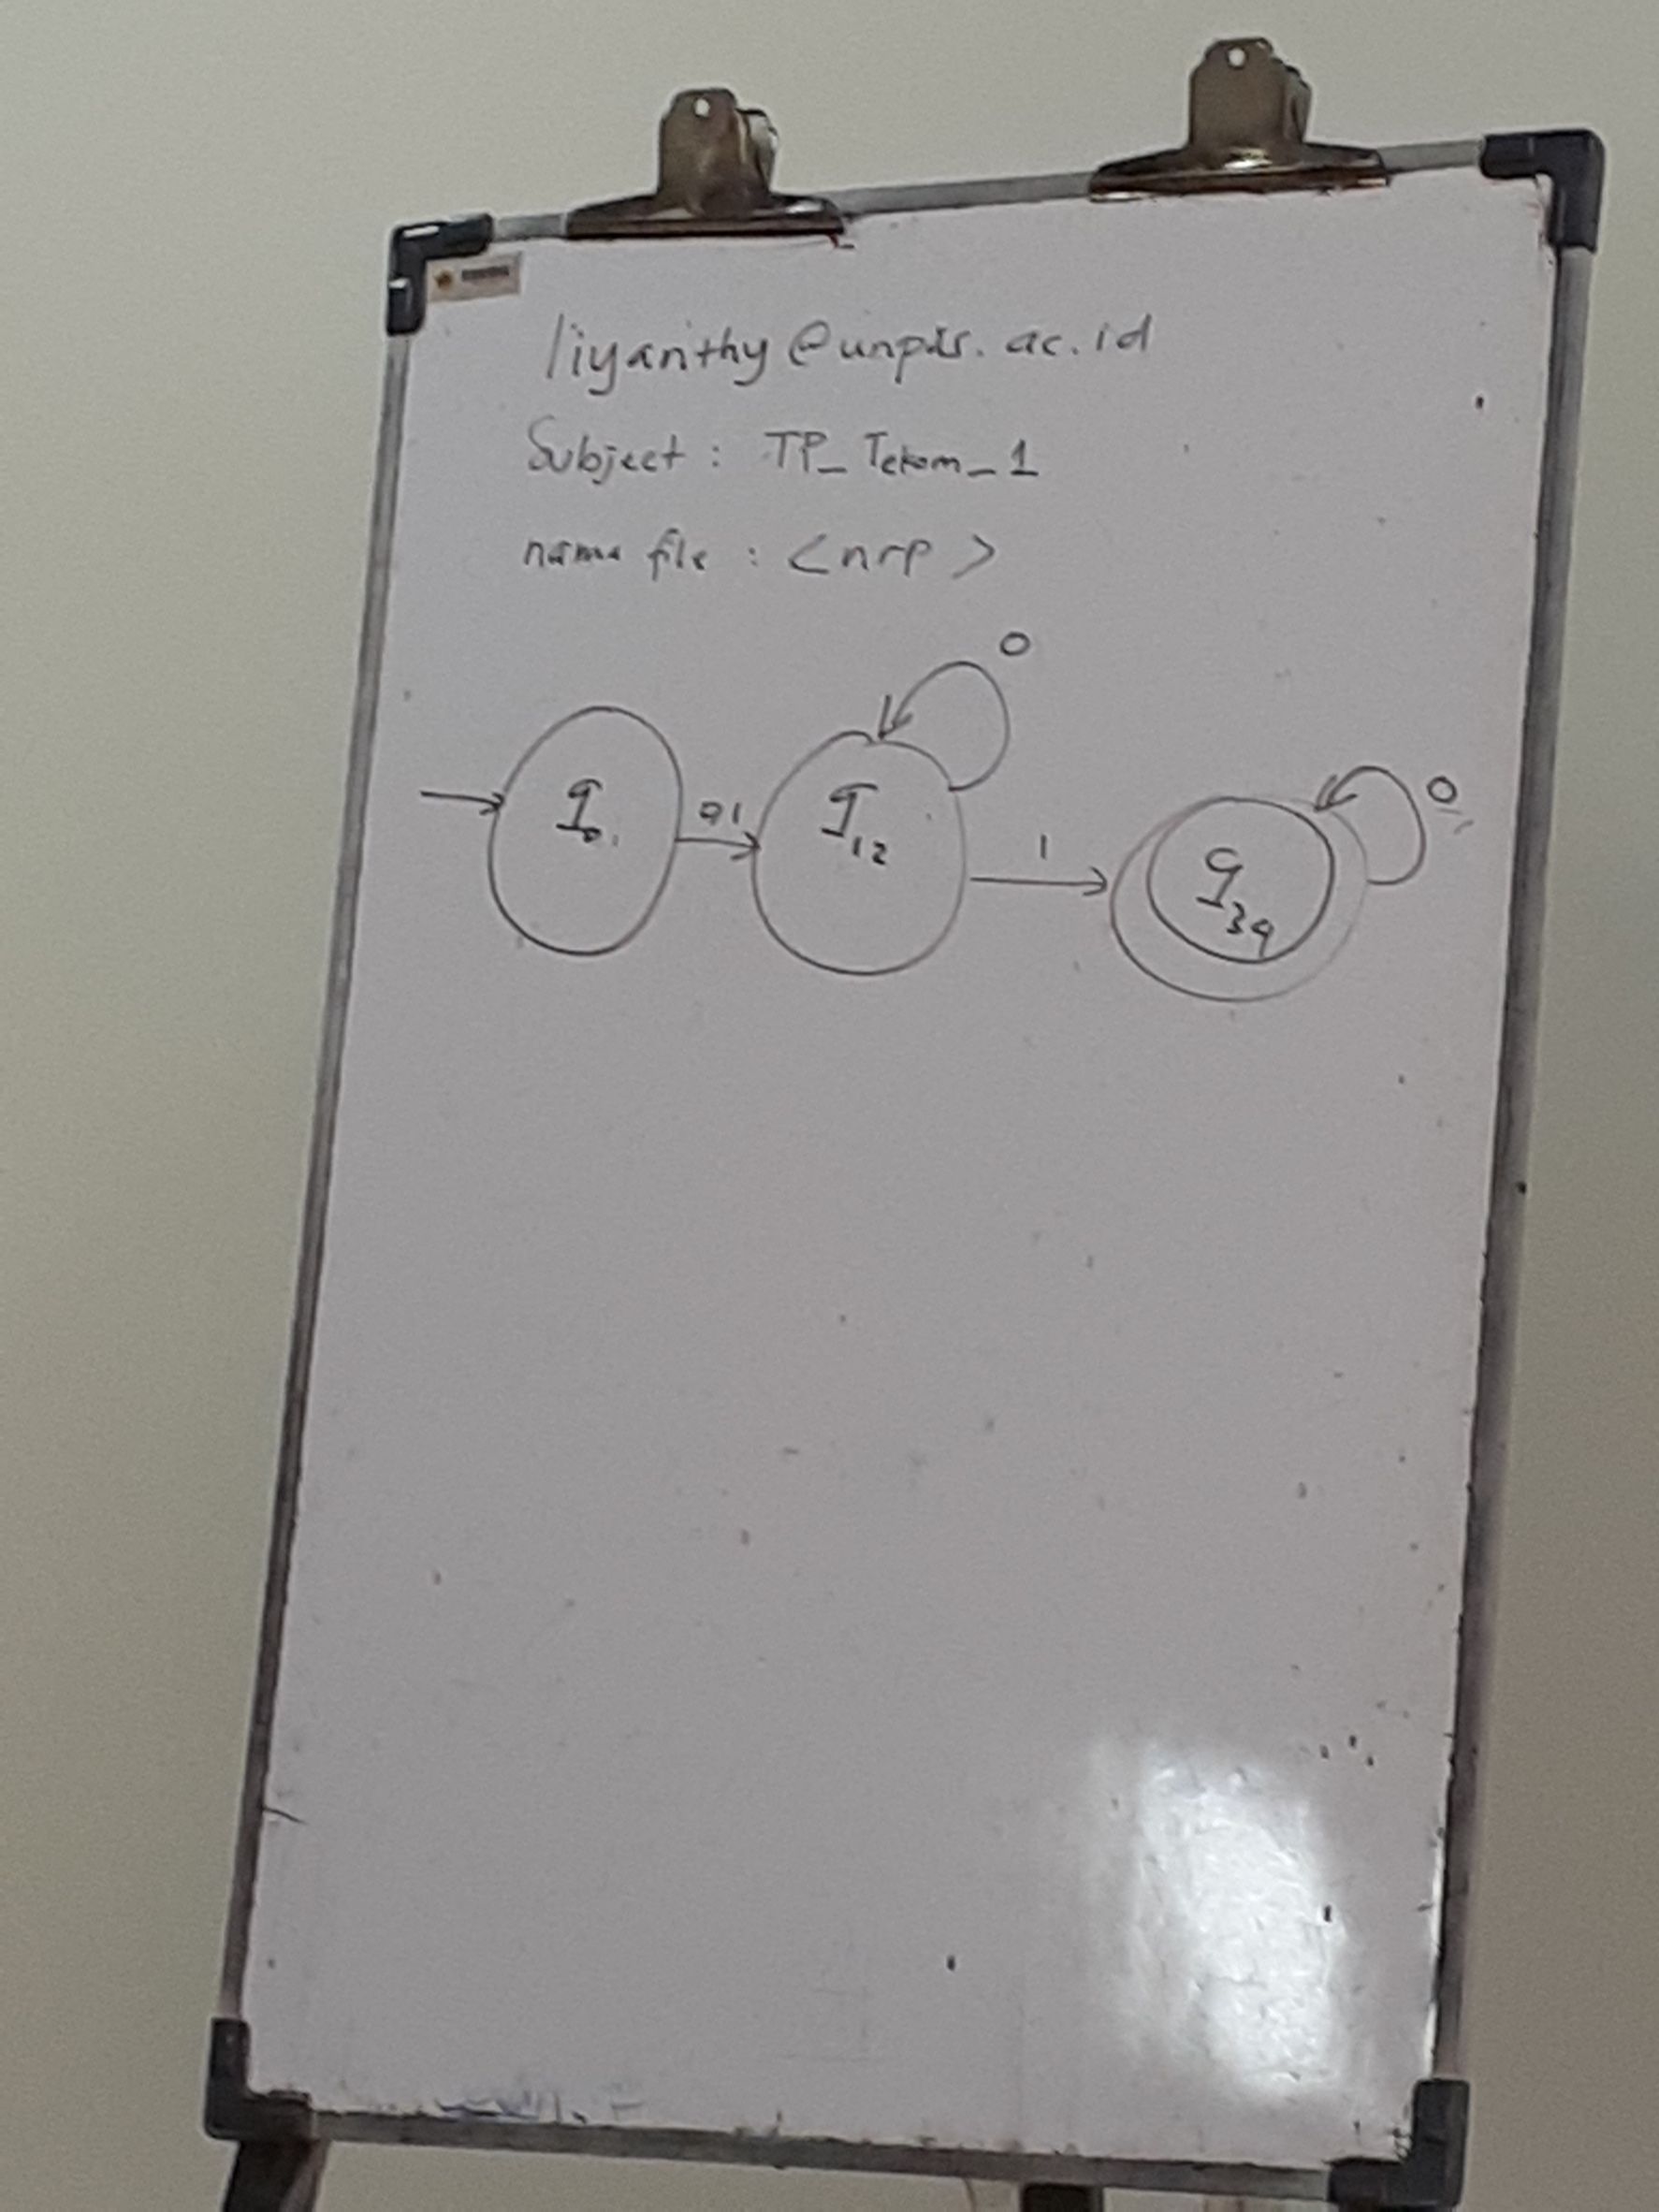 liyanthy@unpas.ac.id
Subject : TP_Tekom_1
nama file : <nrp>
0
q0 0,1 q12 1 q34 0